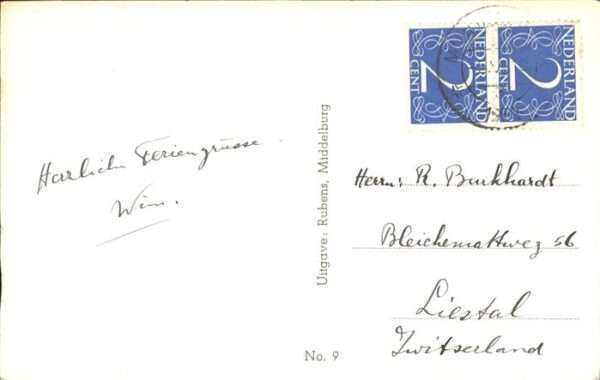 NEDERLAND
2
CENT
NEDERLAND
2
CENT
Harliche Feriengrüsse.
Wim.
Uitgave: Rubens, Middelburg
Herrn: R. Burkhardt
Bleichemattweg 56
Liestal
Zwitserland
No. 9